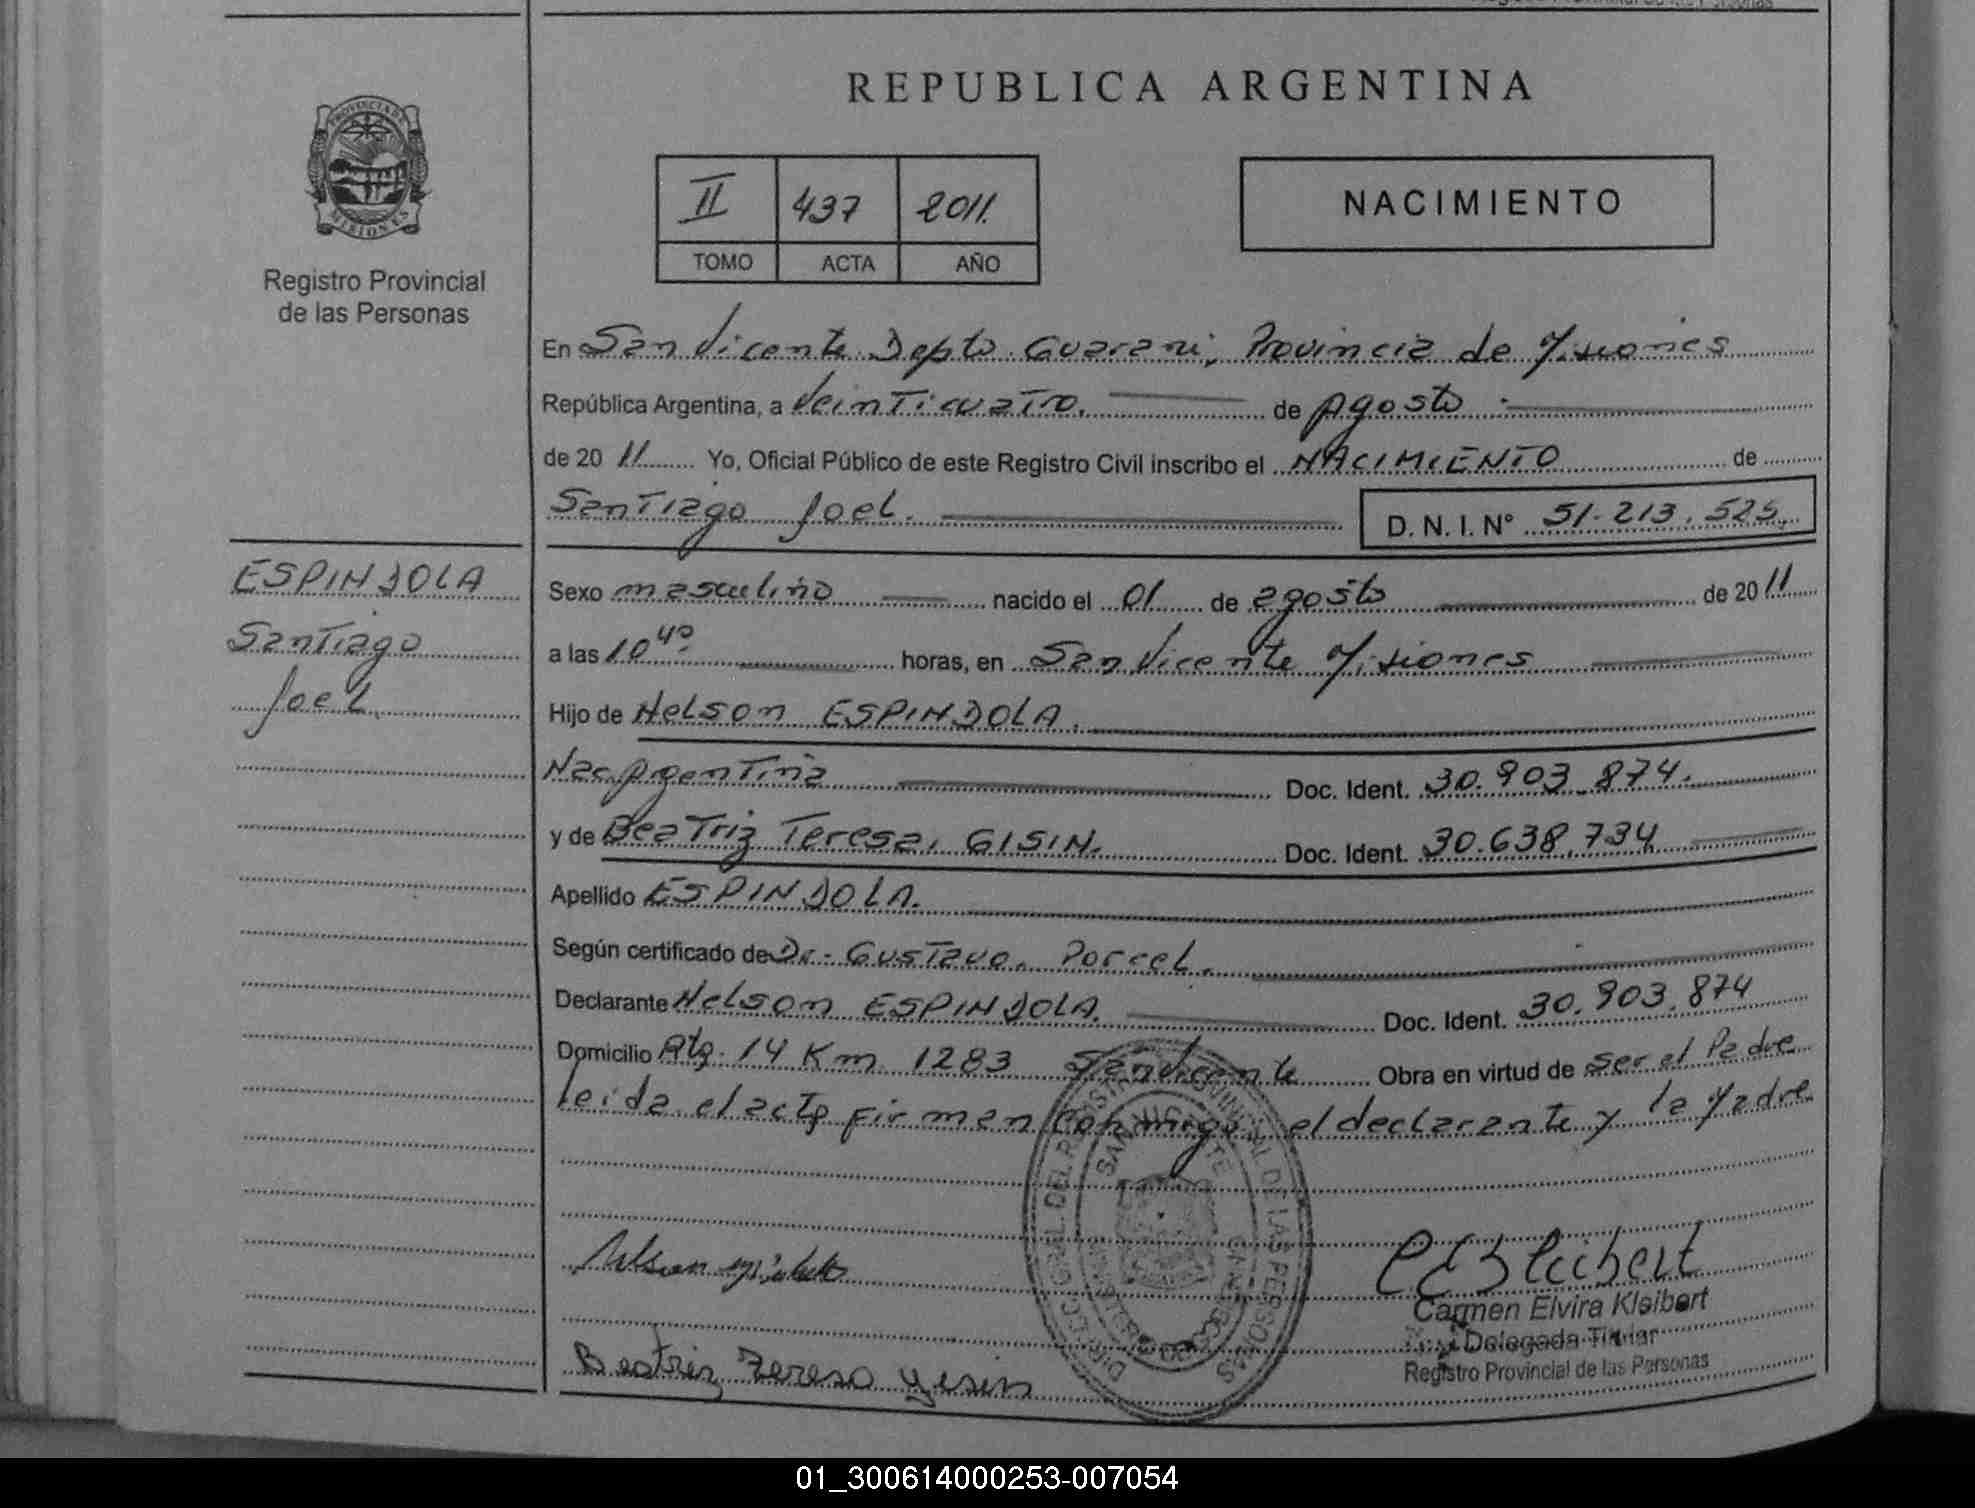 REPUBLICA ARGENTINA
PROVINCIA DE
MISIONES
Registro Provincial
de las Personas
II 437 2011.
TOMO ACTA AÑO
NACIMIENTO
En San Vicente Depto Guarani, Provincia de Misiones
República Argentina, a Veinticuatro. de Agosto
de 20 11 Yo, Oficial Público de este Registro Civil inscribo el NACIMIENTO de
Santiago Joel. D. N. I. N° 51.213.525
ESPINDOLA
Santiago
Joel
Sexo masculino nacido el 01 de agosto de 20 11
a las 10 40 horas, en San Vicente Misiones
Hijo de Nelson ESPINDOLA.
Nac. Argentina Doc. Ident. 30.903.874.
y de Beatriz Teresa, GISIN. Doc. Ident. 30.638.734
Apellido ESPINDOLA.
Según certificado de Dr. Gustavo. Porcel.
Declarante Nelson ESPINDOLA. Doc. Ident. 30.903.874
Domicilio Rta. 14 Km 1283 San Vicente Obra en virtud de ser el Padre
leida el acta firman conmigo el declarante y la Madre
Carmen Elvira Kleibert
Delegada Titular
Registro Provincial de las Personas
Beatriz Teresa Gisin
01_300614000253-007054